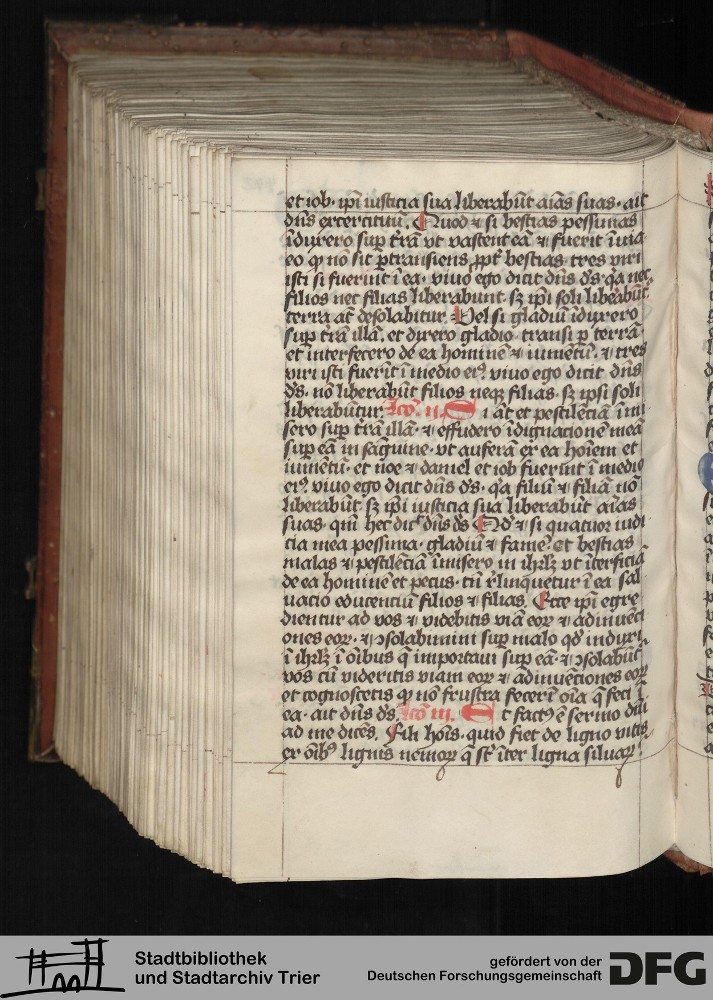 et iob· ip̄i iusticia sua liberabūt aīas suas· ait
dn̄s exercituū. Quod ⁊ si bestias pessimas
īduxero sup̱ t̄rā vt vastent eā ⁊ fuerit īuia
eo ꝙ nō sit ꝑtransiens ꝓpt̄ bestias· tres viri
isti si fuerint ī ea· viuo ego dicit dn̄s d̄s· q̇a nec
filios nec filias liberabunt· sꝫ ip̄i soli liberabūt
terra at̄ desolabitur. Vel si gladiū īduxero
sup̱ t̄rā illā. et dixero gladio· transi ꝑ terrā·
et interfecero de ea hominē ⁊ iumētū· ⁊ tres
viri isti fuerīt ī medio eiꝰ. viuo ego dicit dn̄s
d̄s· nō liberabūt filios neqꝫ filias· sꝫ ipsi soli
liberabūtur. lc̄o. ii. Si āt et pestilēciā īmi
sero sup̱ t̄rā illā· ⁊ effudero īdignacionē meā
sup̱ eā in sāguine· vt auferā ex ea hoīem et
iumētū· et noe ⁊ daniel et iob fuerint ī medio
eiꝰ. viuo ego dicit dn̄s d̄s· q̇a filiū ⁊ filiā nō
liberabūt sꝫ ip̄i iusticia sua liberabūt aīas
suas· qm̄ hec dic̄ dn̄s d̄s Qd̓ ⁊ si quatuor iudi
cia mea pessima· gladiū ⁊ famē· et bestias
malas ⁊ pestilēciā īmisero in ihrl̄z vt īterficiā
de ea hominē et pecus· tn̄ r̓linquetur ī ea sal
uacio educentiū filios ⁊ filias. Ecce ip̄i egre
dientur ad vos ⁊ videbitis viā eoꝝ ⁊ adinuēti
ones eoꝝ· ⁊ ꝯsolabimini sup̱ malo qd̓ induxi
ī ihrl̄z ī oībus q̄ importaui sup̱ eā· ⁊ ꝯsolabūt
vos cū videritis viam eoꝝ ⁊ adinuētiones eoꝝ
et cognoscetis ꝙ nō frustra fecerī oīa q̄ feci ī
ea· ait dn̄s d̄s. lc̄o iii. Et factꝰ ē sermo dn̄i
ad me dicēs. Fili hoīs· quid fiet de ligno vitis
ex oībꝰ lignis nemoꝝ q̄ st̄ īter ligna siluaꝝ·
Stadtbibliothek
und Stadtarchiv Trier
gefördert von der
Deutschen Forschungsgemeinschaft
DFG